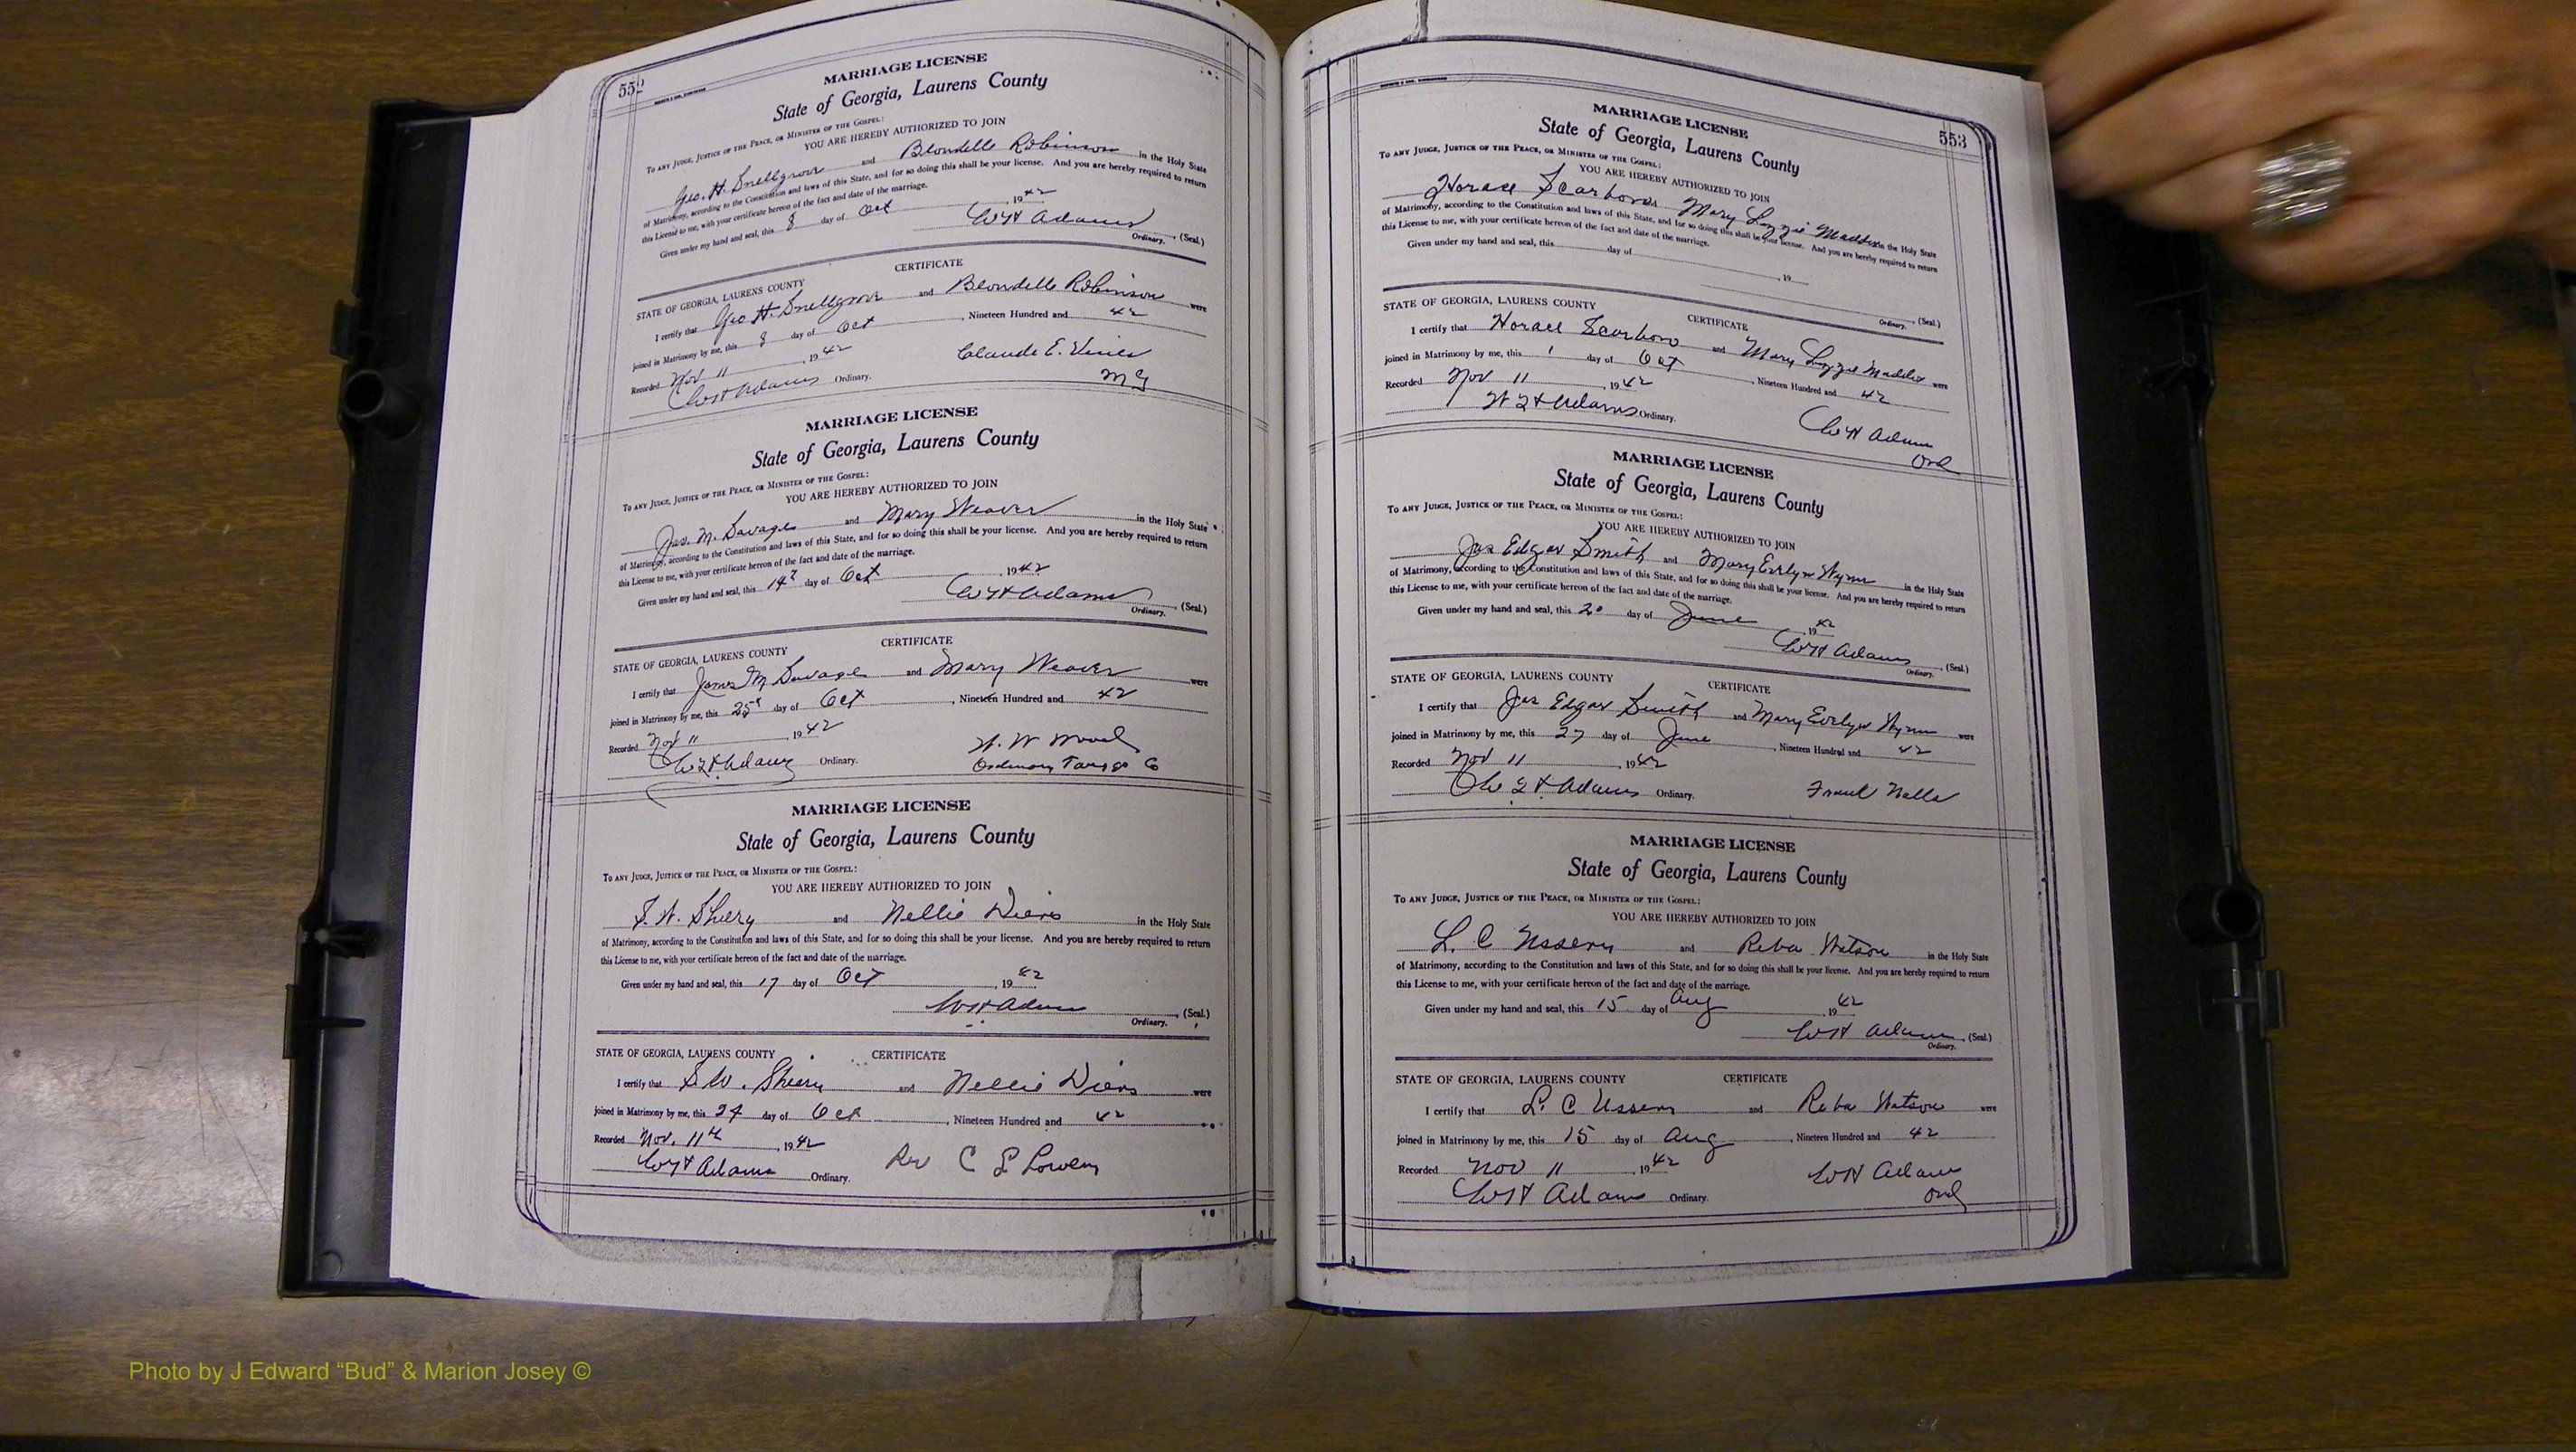 552
MARRIAGE LICENSE
State of Georgia, Laurens County
To any Judge, Justice of the Peace, or Minister of the Gospel:
YOU ARE HEREBY AUTHORIZED TO JOIN
Geo. H. Snellgrove and Blondelle Robinson in the Holy State
of Matrimony, according to the Constitution and laws of this State, and for so doing this shall be your license. And you are hereby required to return
this License to me, with your certificate hereon of the fact and date of the marriage.
Given under my hand and seal, this 8 day of Oct, 1942
W H Adams (Seal.)
Ordinary.
CERTIFICATE
STATE OF GEORGIA, LAURENS COUNTY
I certify that Geo H. Snellgrove and Blondelle Robinson were
joined in Matrimony by me, this 8 day of Oct, Nineteen Hundred and 42
Recorded Nov 11, 1942 Claude E. Vines
W H Adams Ordinary. M G
MARRIAGE LICENSE
State of Georgia, Laurens County
To any Judge, Justice of the Peace, or Minister of the Gospel:
YOU ARE HEREBY AUTHORIZED TO JOIN
Jas. M. Savage and Mary Weaver in the Holy State
of Matrimony, according to the Constitution and laws of this State, and for so doing this shall be your license. And you are hereby required to return
this License to me, with your certificate hereon of the fact and date of the marriage.
Given under my hand and seal, this 14 day of Oct, 1942
W H Adams (Seal.)
Ordinary.
CERTIFICATE
STATE OF GEORGIA, LAURENS COUNTY
I certify that James M Savage and Mary Weaver were
joined in Matrimony by me, this 25 day of Oct, Nineteen Hundred and 42
Recorded Nov 11, 1942 W. W
W H Adams Ordinary. Ordinary Co
MARRIAGE LICENSE
State of Georgia, Laurens County
To any Judge, Justice of the Peace, or Minister of the Gospel:
YOU ARE HEREBY AUTHORIZED TO JOIN
and Nellie in the Holy State
of Matrimony, according to the Constitution and laws of this State, and for so doing this shall be your license. And you are hereby required to return
this License to me, with your certificate hereon of the fact and date of the marriage.
Given under my hand and seal, this 17 day of Oct, 1942
W H Adams (Seal.)
Ordinary.
STATE OF GEORGIA, LAURENS COUNTY CERTIFICATE
I certify that and Nellie were
joined in Matrimony by me, this 24 day of Oct, Nineteen Hundred and 42
Recorded Nov. 11th, 1942
W H Adams Ordinary. Rev C
553
MARRIAGE LICENSE
State of Georgia, Laurens County
To any Judge, Justice of the Peace, or Minister of the Gospel:
YOU ARE HEREBY AUTHORIZED TO JOIN
Horace Scarboro Mary Lizzie Maddix in the Holy State
of Matrimony, according to the Constitution and laws of this State, and for so doing this shall be your license. And you are hereby required to return
this License to me, with your certificate hereon of the fact and date of the marriage.
Given under my hand and seal, this day of , 19
Ordinary. (Seal.)
STATE OF GEORGIA, LAURENS COUNTY CERTIFICATE
I certify that Horace Scarboro and Mary Lizzie Maddix were
joined in Matrimony by me, this 1 day of Oct, Nineteen Hundred and 42
Recorded Nov 11, 1942
W H Adams Ordinary. W H Adams
Ord
MARRIAGE LICENSE
State of Georgia, Laurens County
To any Judge, Justice of the Peace, or Minister of the Gospel:
YOU ARE HEREBY AUTHORIZED TO JOIN
Jas Edgar Smith and Mary Evelyn Wynn in the Holy State
of Matrimony, according to the Constitution and laws of this State, and for so doing this shall be your license. And you are hereby required to return
this License to me, with your certificate hereon of the fact and date of the marriage.
Given under my hand and seal, this 20 day of June, 1942
W H Adams (Seal.)
Ordinary.
STATE OF GEORGIA, LAURENS COUNTY CERTIFICATE
I certify that Jas Edgar Smith and Mary Evelyn Wynn were
joined in Matrimony by me, this 27 day of June, Nineteen Hundred and 42
Recorded Nov 11, 1942
W H Adams Ordinary.
MARRIAGE LICENSE
State of Georgia, Laurens County
To any Judge, Justice of the Peace, or Minister of the Gospel:
YOU ARE HEREBY AUTHORIZED TO JOIN
L. C Ussery and Reba Watson in the Holy State
of Matrimony, according to the Constitution and laws of this State, and for so doing this shall be your license. And you are hereby required to return
this License to me, with your certificate hereon of the fact and date of the marriage.
Given under my hand and seal, this 15 day of Aug, 1942
W H Adams (Seal.)
Ordinary.
STATE OF GEORGIA, LAURENS COUNTY CERTIFICATE
I certify that L. C Ussery and Reba Watson were
joined in Matrimony by me, this 15 day of Aug, Nineteen Hundred and 42
Recorded Nov 11, 1942 W H Adams
W H Adams Ordinary. Ord
Photo by J Edward “Bud” & Marion Josey ©